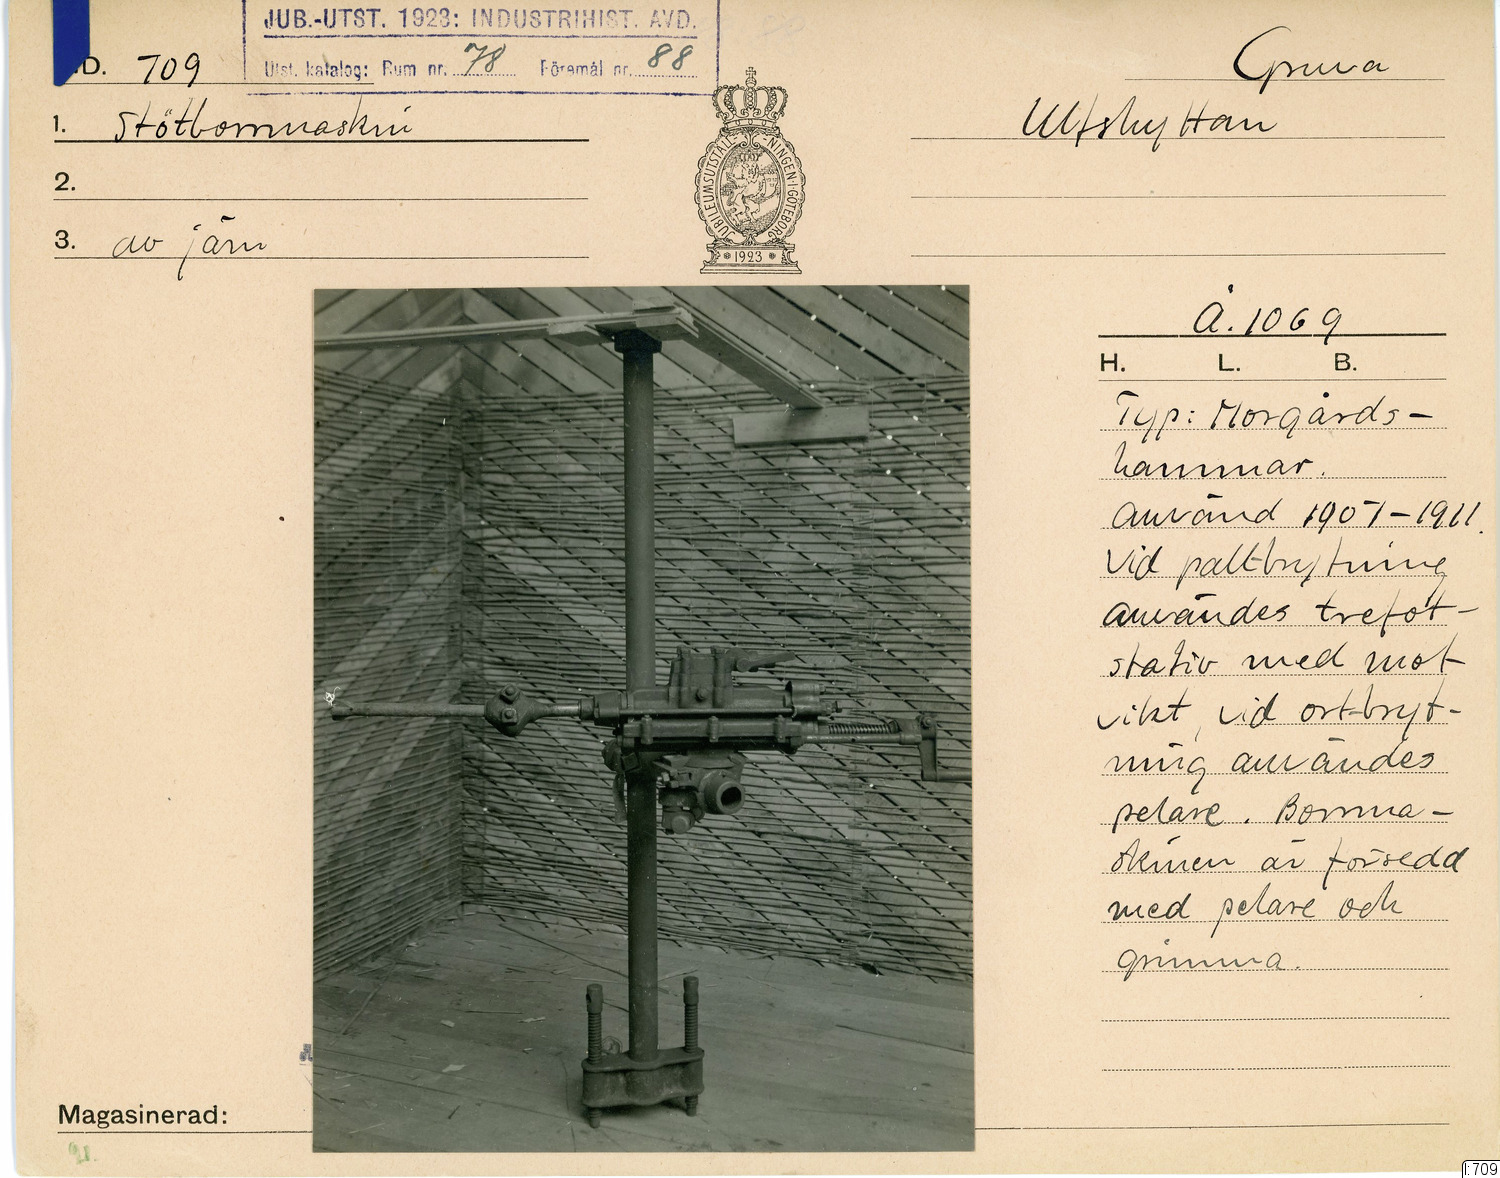 JUB.-UTST. 1923: INDUSTRIHIST. AVD.
Utst. katalog: Rum nr. 78 Föremål nr. 88
D. 709
Gruva
1. Stötborrmaskin
Ulfshyttan
2.
3. av järn
JUBILEUMSUTSTÄLLNINGEN I GÖTEBORG
1923
Å. 1069
H. L. B.
Typ: Morgårds-
hammar.
Använd 1907-1911.
Vid pallbrytning
användes trefot-
stativ med mot-
vikt, vid ortbryt-
ning användes
pelare. Borrma-
skinen är försedd
med pelare och
grimma.
Magasinerad:
I:709